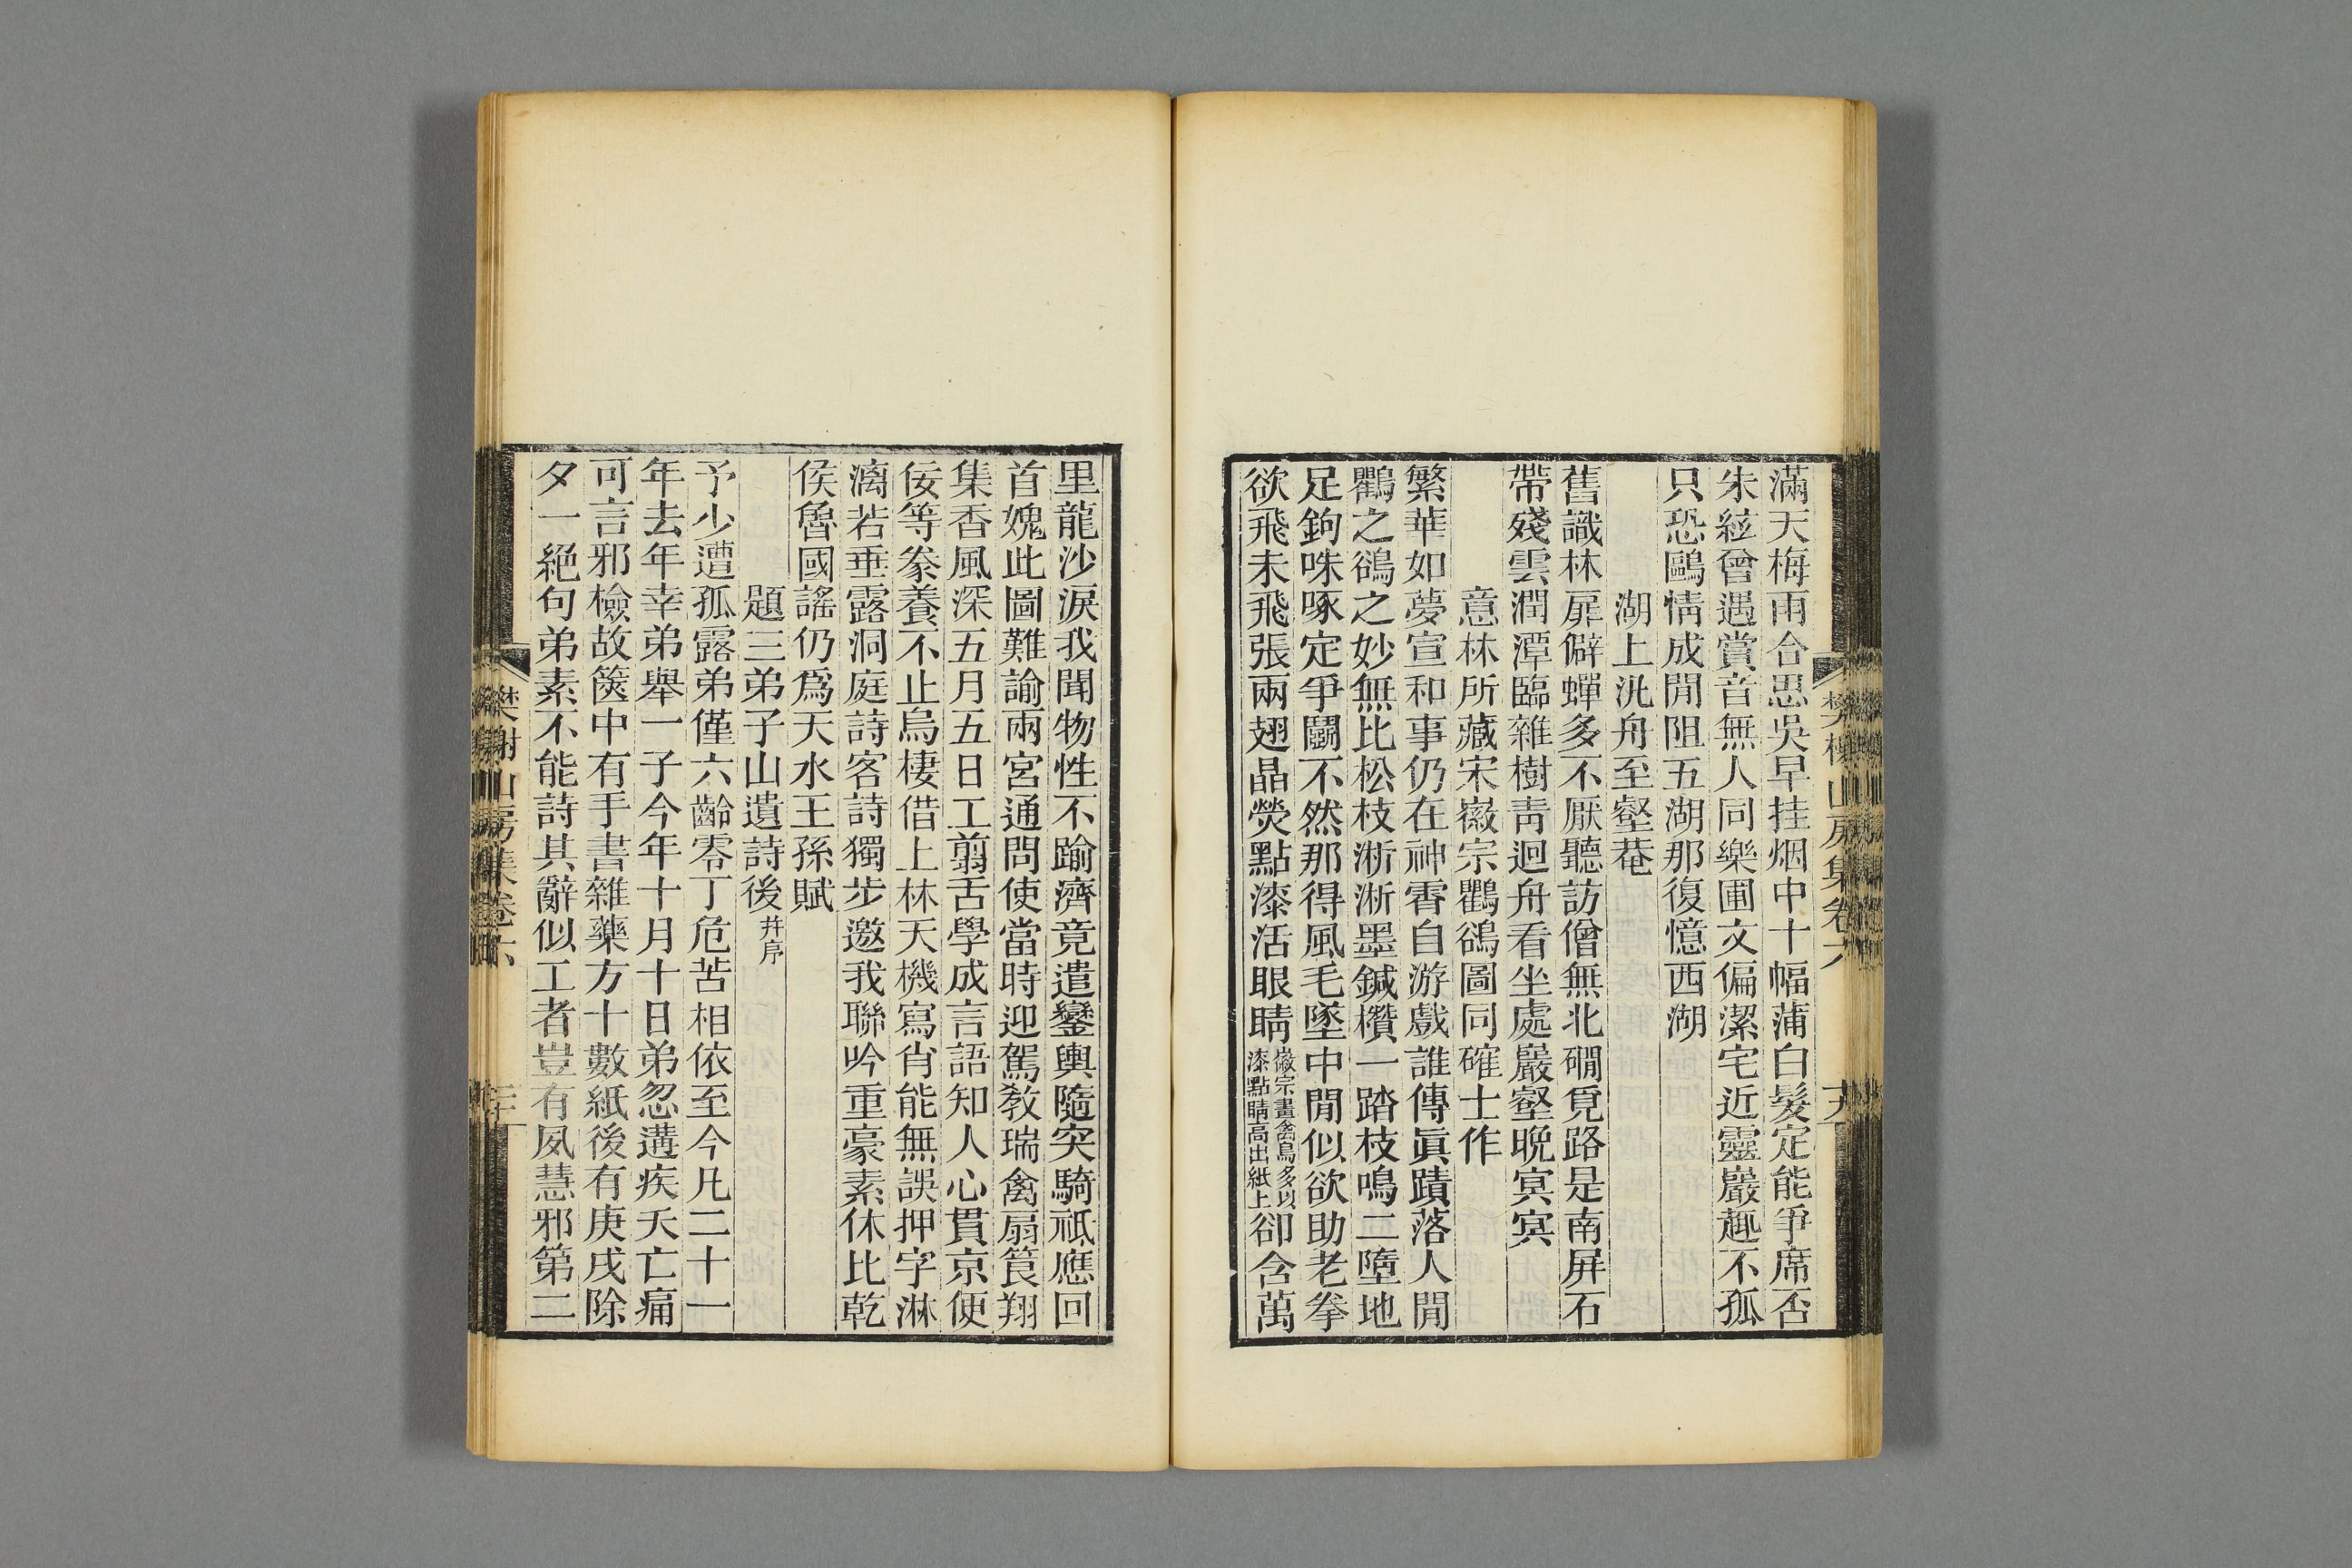 滿天梅雨合思吳早挂烟中十幅蒲白髮定能爭席否
朱絃曾遇賞音無人同樂圃文偏潔宅近靈巖趣不孤
只恐鷗情成閒阻五湖那復憶西湖
湖上泛舟至壑菴
舊識林扉僻蟬多不厭聽訪僧無北磵覓路是南屏石
帶殘雲潤潭臨雜樹靑迴舟看坐處巖壑晩冥冥
意林所藏宋徽宗鸜鵒圖同確士作
繁華如夢宣和事仍在神霄自游戲誰傳眞蹟落人間
鸜之鵒之妙無比松枝淅淅墨鍼欑一踏枝鳴二墮地
足鉤咮啄定爭鬬不然那得風毛墜中閒似欲助老拳
欲飛未飛張兩翅晶熒點漆活眼睛徽宗畫禽鳥多以漆點睛高出紙上卻含萬
里龍沙淚我聞物性不踰濟竟遣鑾輿隨突騎祗應回
首媿此圖難諭兩宮通問使當時迎駕敎瑞禽扇筤翔
集香風深五月五日工翦舌學成言語知人心貫京便
佞等豢養不止烏棲借上林天機寫肖能無誤押字淋
漓若垂露洞庭詩客詩獨步邀我聯吟重豪素休比乾
侯魯國謠仍爲天水王孫賦
題三弟子山遺詩後幷序
予少遭孤露弟僅六齡零丁危苦相依至今凡二十一
年去年幸弟舉一子今年十月十日弟忽遘疾夭亡痛
可言邪檢故篋中有手書雜藥方十數紙後有庚戌除
夕一絕句弟素不能詩其辭似工者豈有夙慧邪第二
樊榭山房集卷六